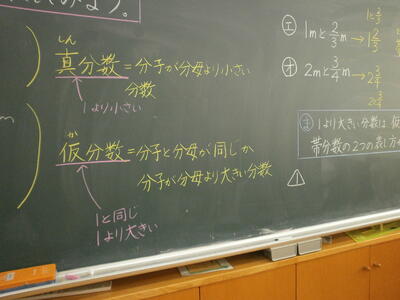 しん
真分数＝分子が分母より小さい
分数
1より小さい
か
仮分数＝分子と分母が同じか
分子が分母より大きい分数
1と同じ
1より大きい
エ 1mと2/3m→1 2/3
1と2/3
オ 2mと3/4m→2 3/4
2と3/4
ま 1より大きい分数は仮
帯分数の2つの表し方